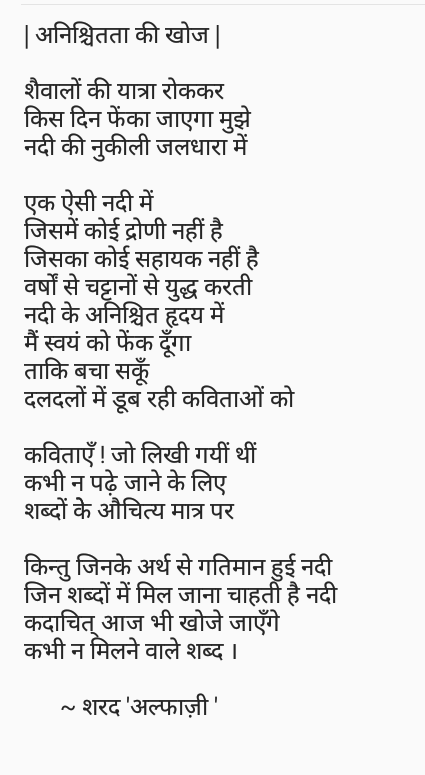 | अनिश्चितता की खोज |
शैवालों की यात्रा रोककर
किस दिन फेंका जाएगा मुझे
नदी की नुकीली जलधारा में
एक ऐसी नदी में
जिसमें कोई द्रोणी नहीं है
जिसका कोई सहायक नहीं है
वर्षों से चट्टानों से युद्ध करती
नदी के अनिश्चित हृदय में
मैं स्वयं को फेंक दूँगा
ताकि बचा सकूँ
दलदलों में डूब रही कविताओं को
कविताएँ ! जो लिखी गयीं थीं
कभी न पढ़े जाने के लिए
शब्दों के औचित्य मात्र पर
किन्तु जिनके अर्थ से गतिमान हुई नदी
जिन शब्दों में मिल जाना चाहती है नदी
कदाचित् आज भी खोजे जाएँगे
कभी न मिलने वाले शब्द ।
~ शरद 'अल्फाज़ी '